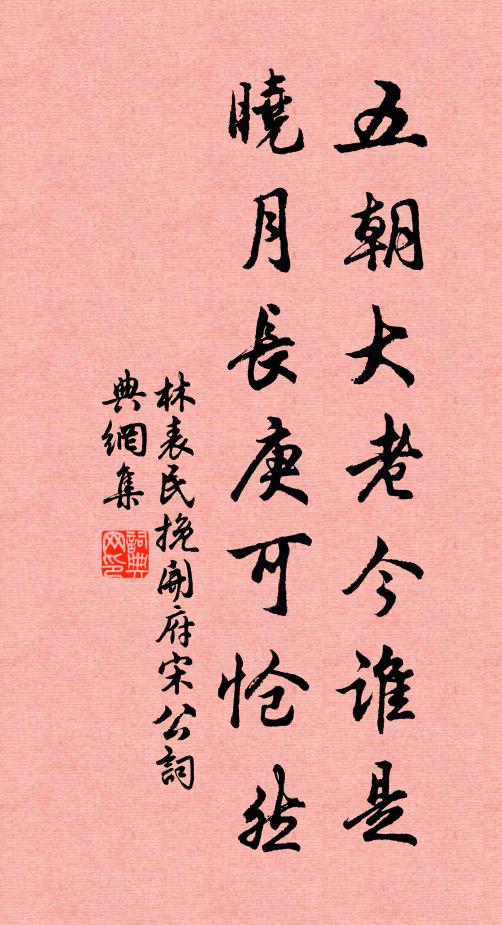 五朝大老今誰是
曉月長庚可愴然
林表民挽開府宋公詞
典網集
詞典
网印